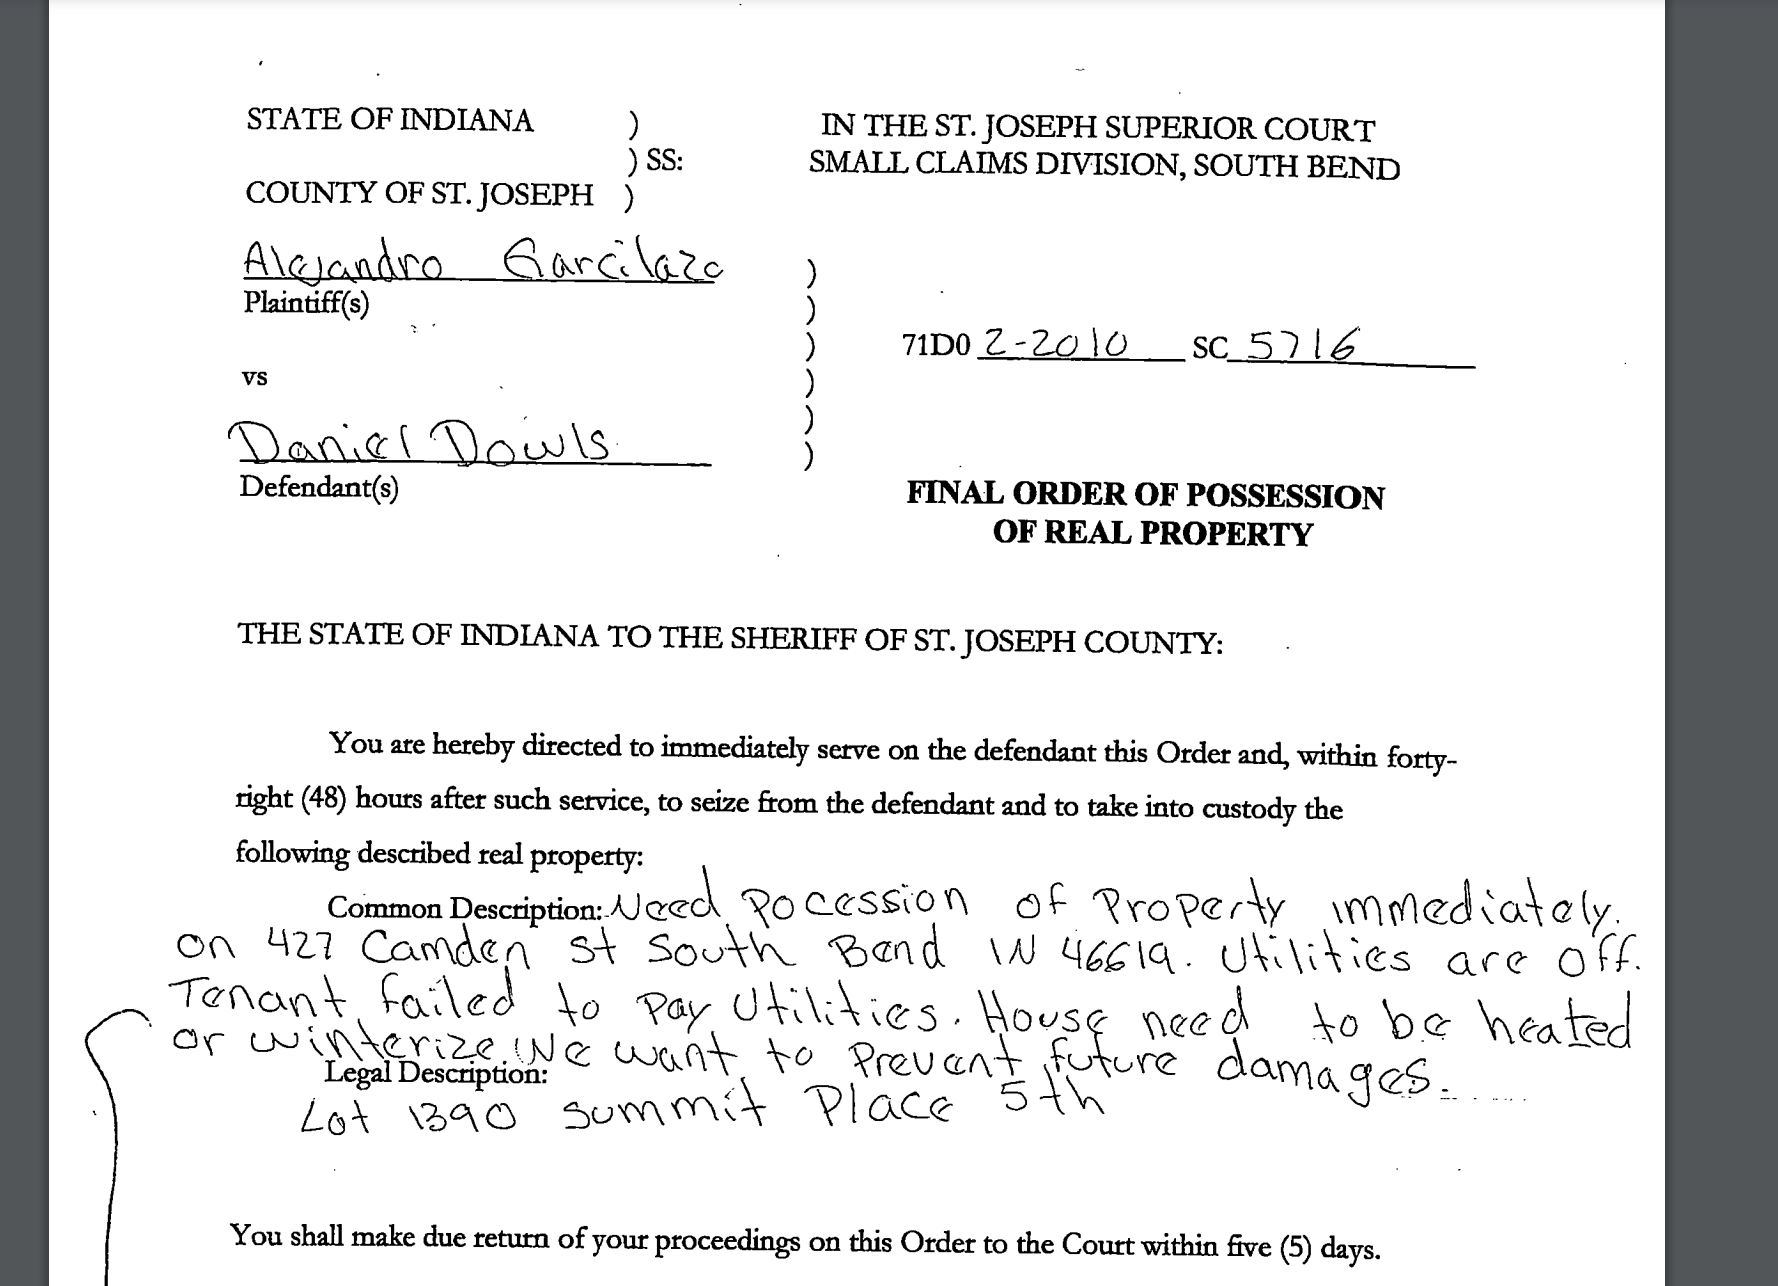 STATE OF INDIANA )
) SS:
COUNTY OF ST. JOSEPH )
IN THE ST. JOSEPH SUPERIOR COURT
SMALL CLAIMS DIVISION, SOUTH BEND
Alejandro Garcilazo
Plaintiff(s)
vs
Daniel Dowls
Defendant(s)
)
)
)
)
)
)
71D0 2-2010 SC 5716
FINAL ORDER OF POSSESSION
OF REAL PROPERTY
THE STATE OF INDIANA TO THE SHERIFF OF ST. JOSEPH COUNTY:
You are hereby directed to immediately serve on the defendant this Order and, within forty-
right (48) hours after such service, to seize from the defendant and to take into custody the
following described real property:
Common Description: Need Pocession of Property immediately.
on 427 Camden st South Bend IN 46619. Utilities are off.
Tenant failed to Pay Utilities. House need to be heated
or winterize. We want to Prevent future damages.
Legal Description:
Lot 1390 Summit Place 5th
You shall make due return of your proceedings on this Order to the Court within five (5) days.